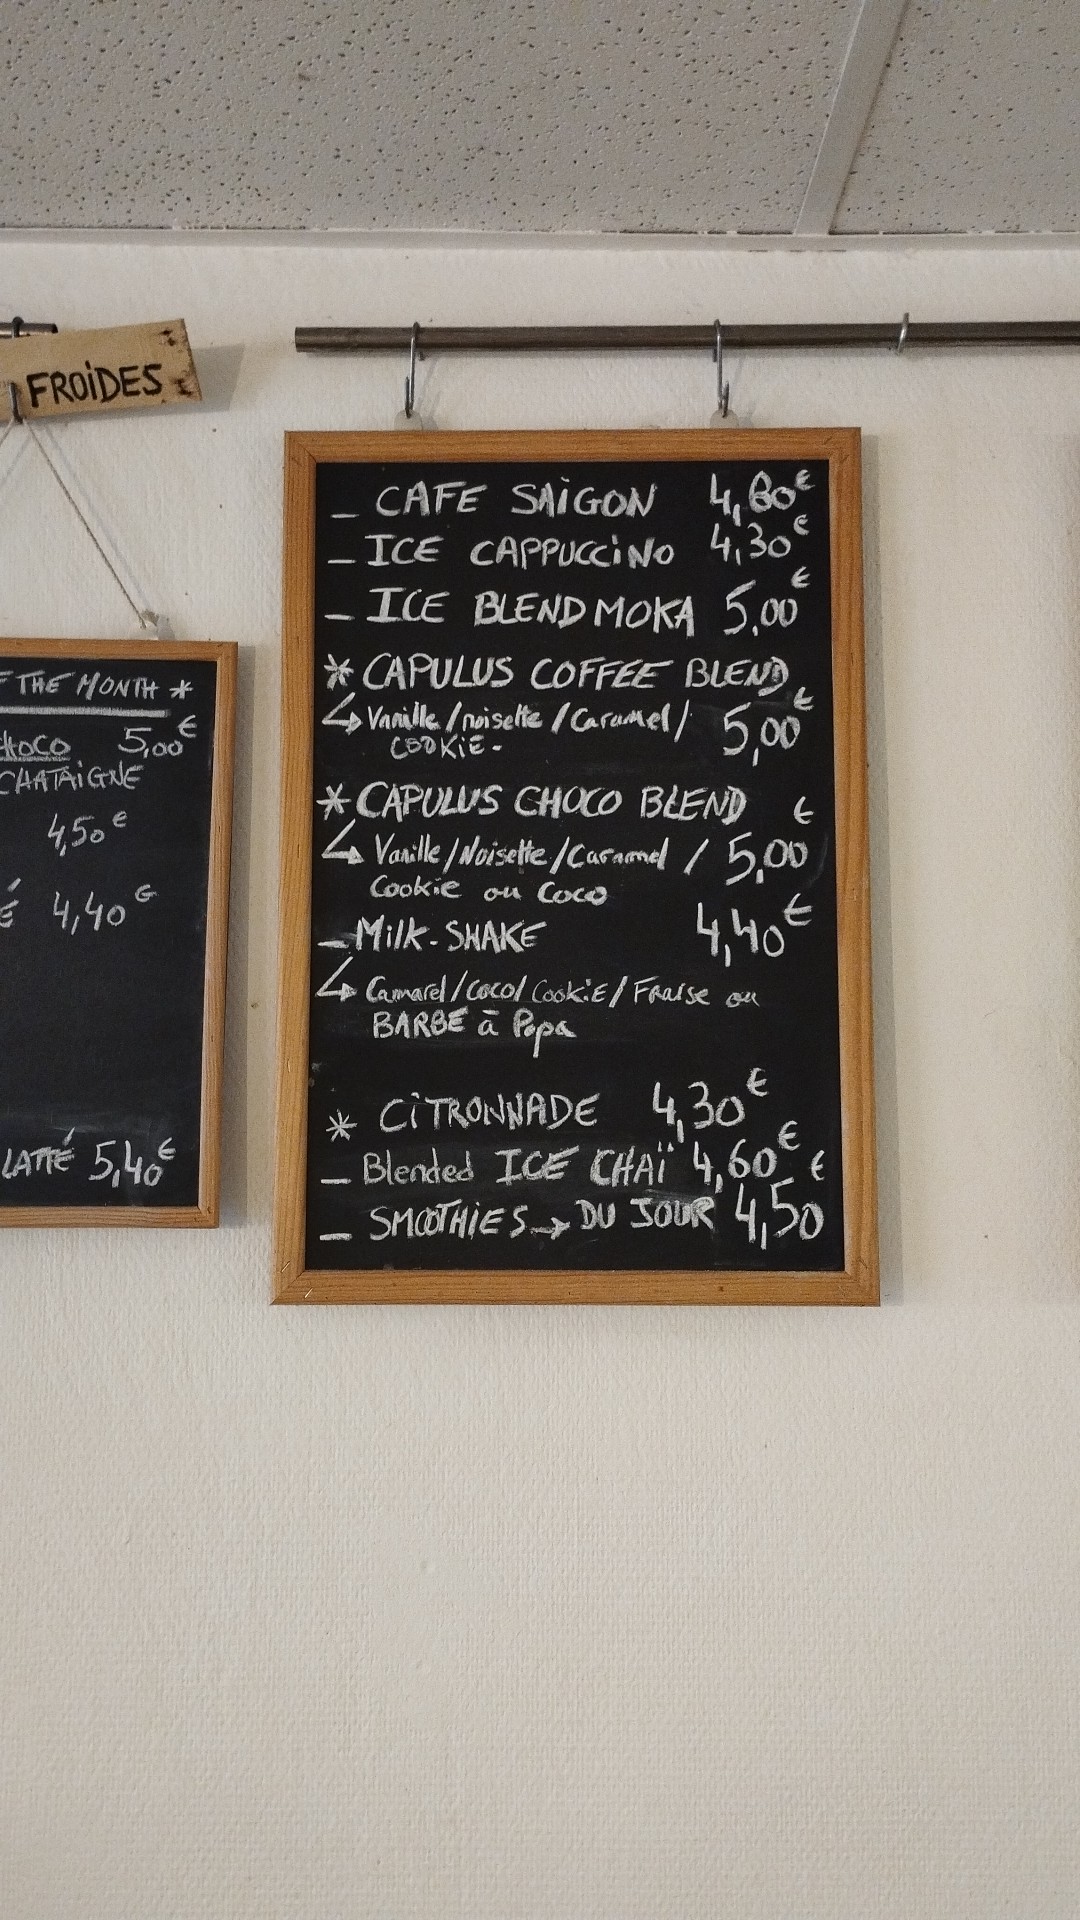 FROIDES
THE MONTH *
CHOCO 5,00€
CHATAIGNE
4,50€
É 4,40€
LATTÉ 5,40€
_ CAFE SAIGON 4,60€
_ ICE CAPPUCCINO 4,30€
_ ICE BLEND MOKA 5,00€
* CAPULUS COFFEE BLEND
↳ Vanille/noisette/Caramel/ 5,00€
COOKIE.
* CAPULUS CHOCO BLEND €
↳ Vanille/Noisette/Caramel / 5,00
Cookie ou Coco
_ Milk-SHAKE 4,40€
↳ Camarel/coco/Cookie/Fraise ou
BARBE à Papa
* CITRONNADE 4,30€
_ Blended ICE CHAÏ 4,60€
_ SMOOTHIES → DU JOUR 4,50€